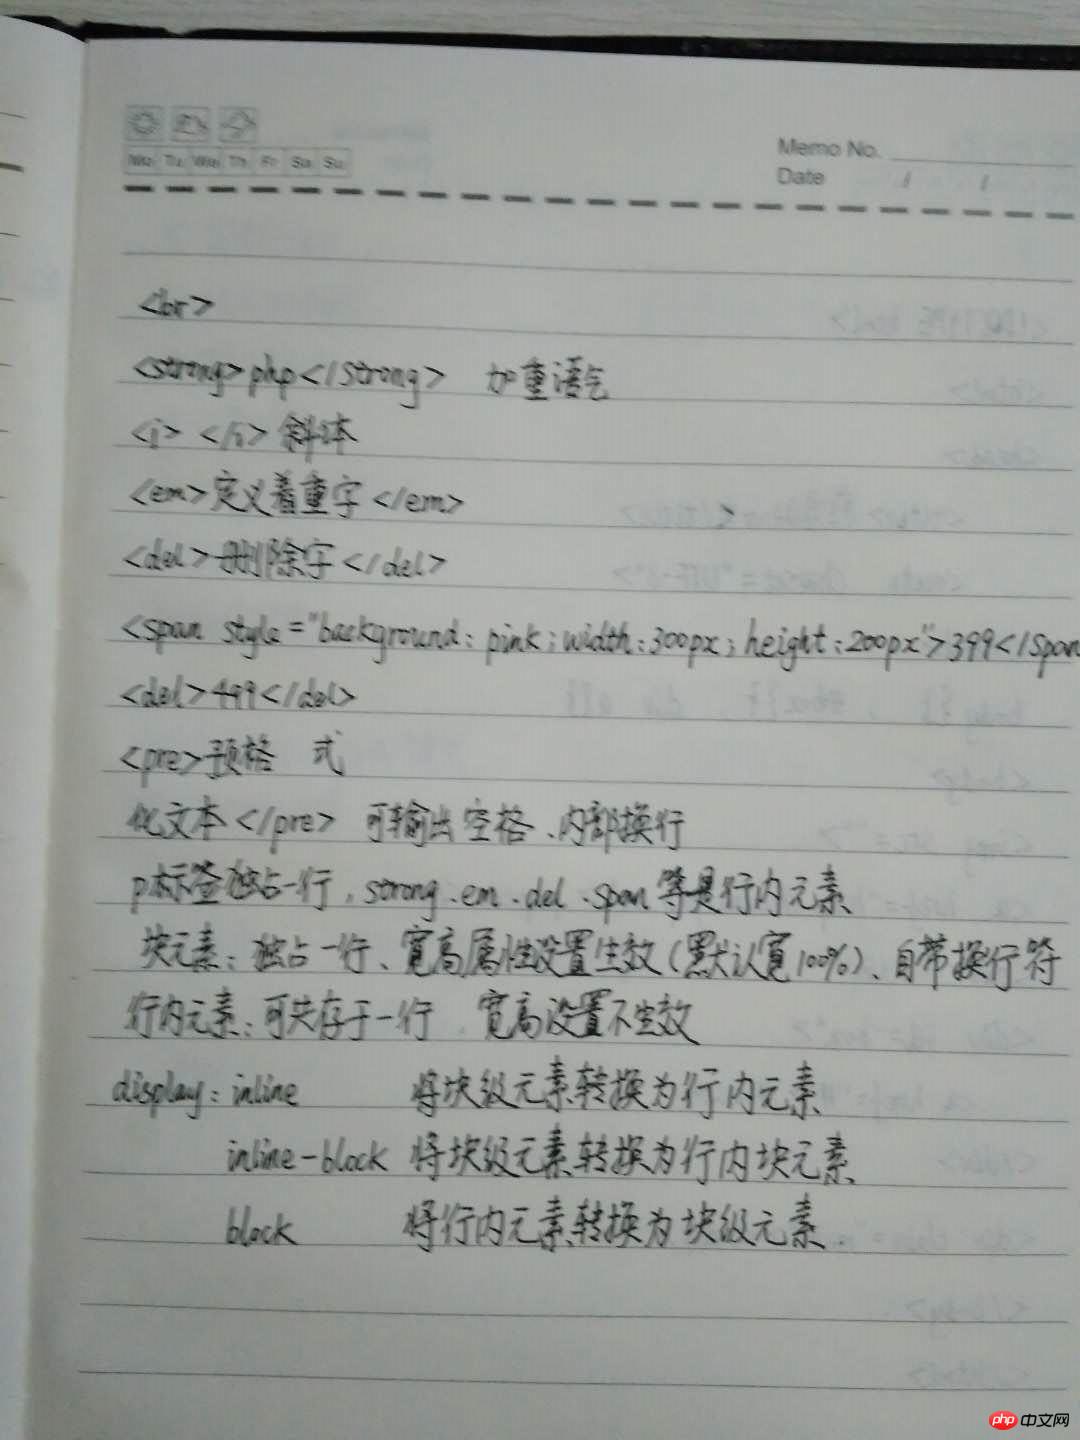 Mo Tu We Th Fr Sa Su
Memo No.
Date / /
<br>
<strong>php</strong> 加重语气
<i> </i> 斜体
<em>定义着重字</em>
<del>删除字</del>
<span style="background: pink; width: 300px; height: 200px">399</span
<del>499</del>
<pre>预格 式
化文本</pre> 可输出空格、内部换行
p标签独占一行，strong、em、del、span等是行内元素
块元素：独占一行、宽高属性设置生效(默认宽100%)、自带换行符
行内元素：可共存于一行、宽高设置不生效
display: inline 将块级元素转换为行内元素
inline-block 将块级元素转换为行内块元素
block 将行内元素转换为块级元素
php 中文网